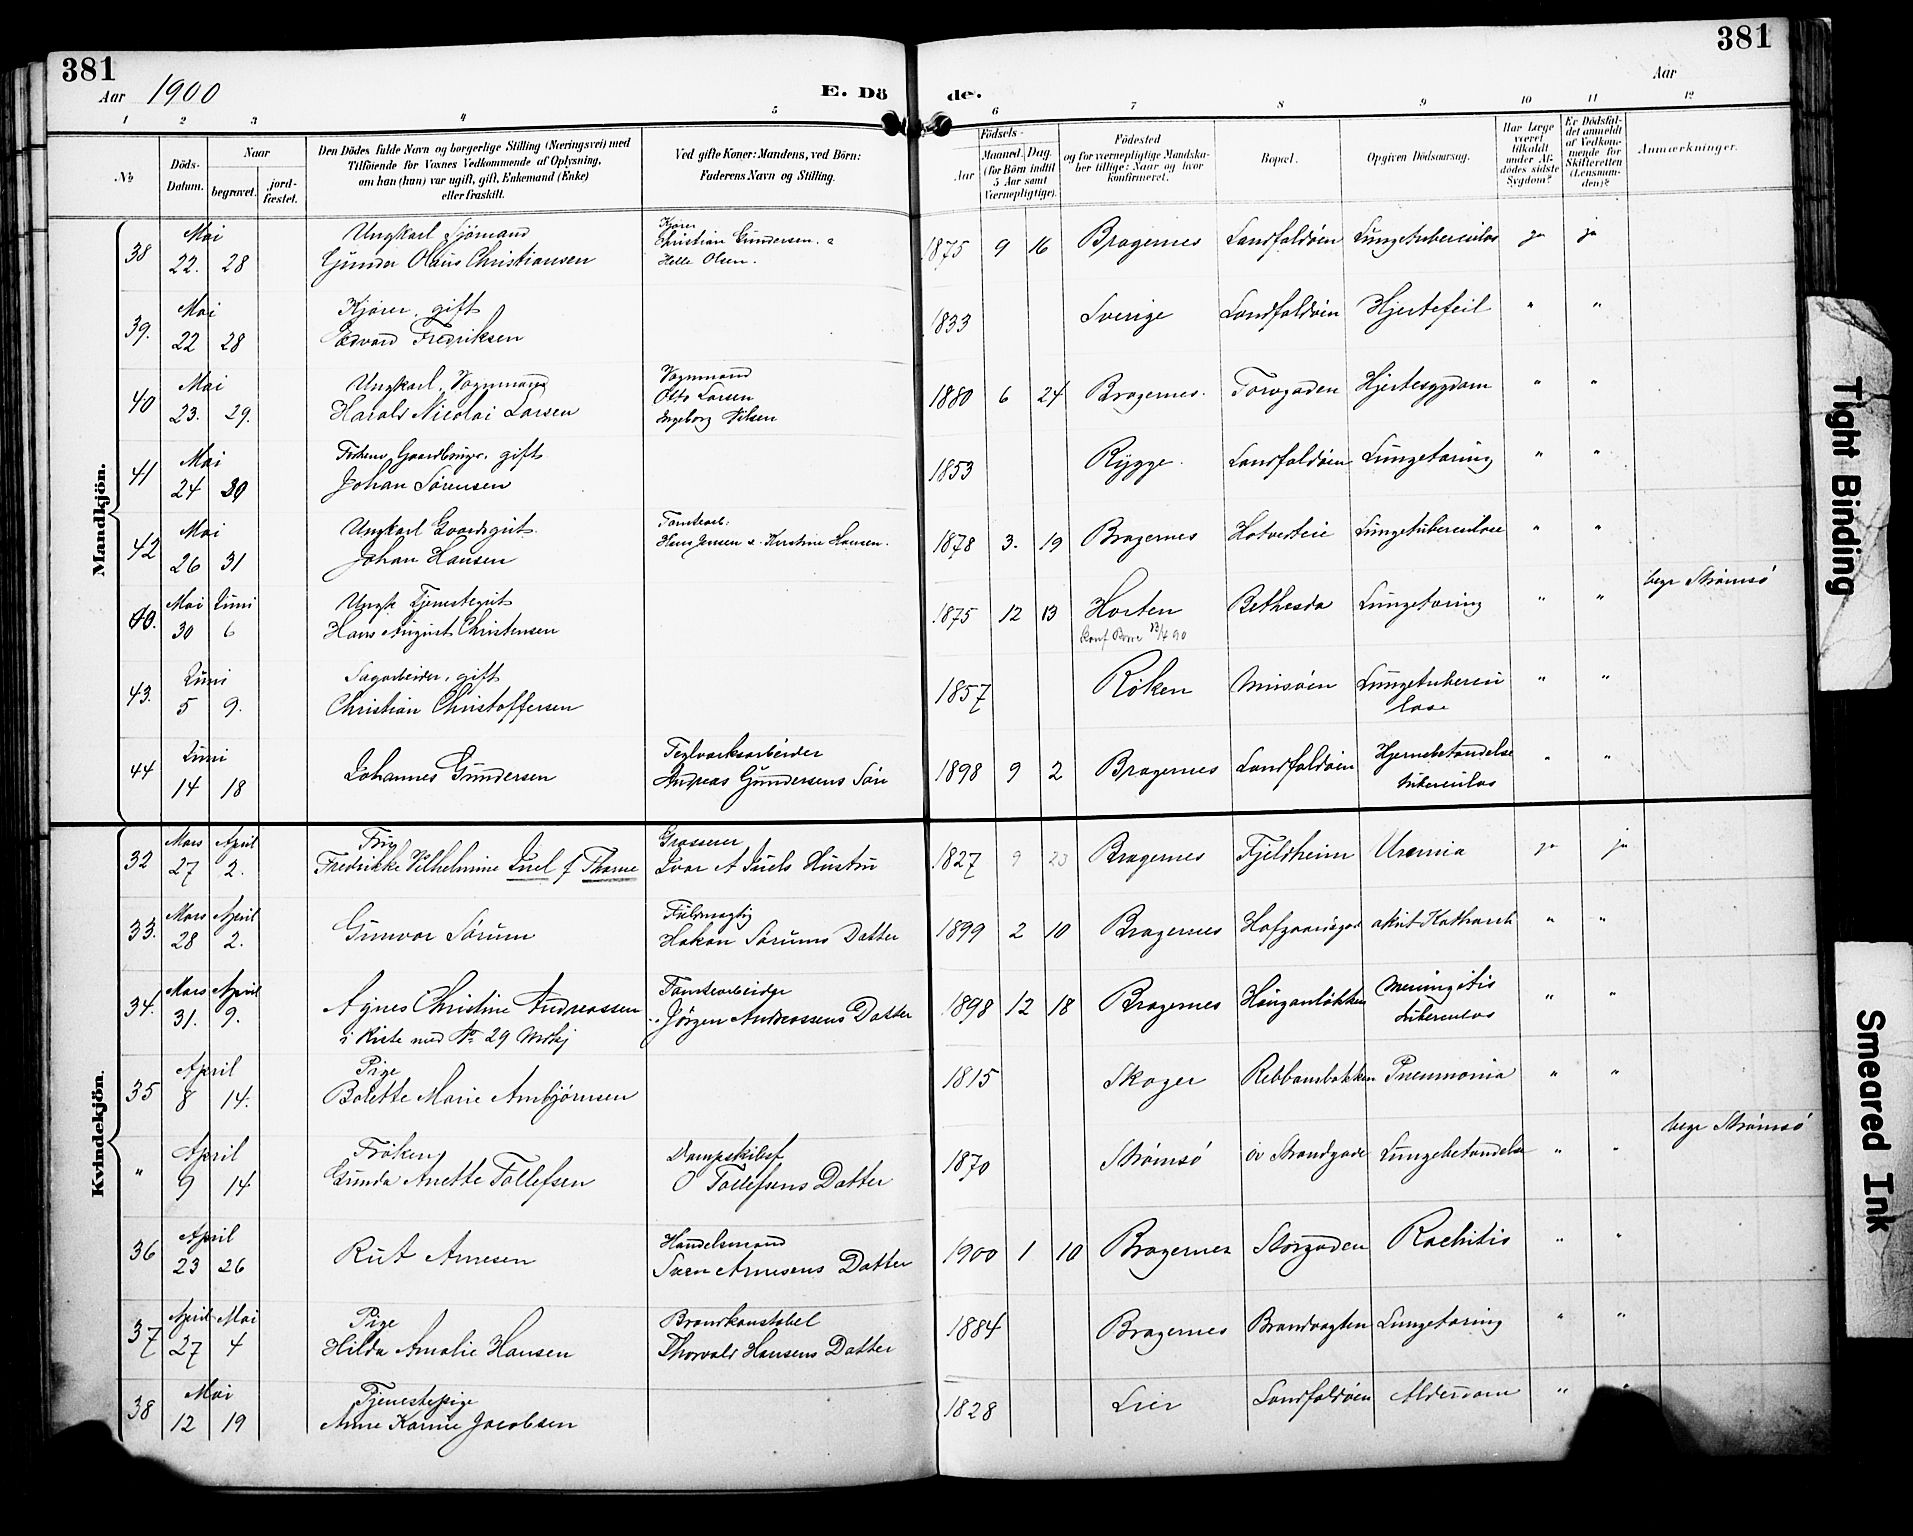 381
381
Aar 1900
E. Dö
de.
Aar
1 2 3 4 5 6 7 8 9 10 11 12
No
Döds-
Datum.
Naar
begravet.
jord-
fæstet.
Den Dödes fulde Navn og borgerlige Stilling (Næringsvei) med
Tilföiende for Voxnes Vedkommende af Oplysning,
om han (hun) var ugift, gift, Enkemand (Enke)
eller fraskilt.
Ved gifte Koner: Mandens, ved Börn:
Faderens Navn og Stilling.
Födsels-
Aar
Maaned. Dag.
(for Börn indtil
5 Aar samt
Værnepligtige).
Födested
og for værnepligtige Mandska-
ber tillige: Naar og hvor
konfirmeret.
Bopæl.
Opgiven Dödsaarsag.
Har Læge
været
tilkaldt
under Af-
dödes sidste
Sygdom?
Er Dödsfal-
det anmeldt
af Vedkom-
mende for
Skifteretten
(Lensman-
den)?
Anmærkninger.
Mandkjön.
38 Mai 22. 28 Ungkarl Sjömand
Gunder Olaus Christiansen
Kjører
Christian Gundersen
Helle Olsen.
1875 9 16 Bragernes Landfaldöen Lungetuberculos ja ja
39. Mai 22 28 Kjører, gift
Edvard Fredriksen
1833 Sverige Landfaldöen Hjertefeil " "
40 Mai 23. 29. Ungkarl, Vognmand
Harald Nicolai Larsen
Vognmand
Otto Larsen
Ingeborg Nilsen
1880 6 24 Bragernes. Torvgaden Hjertesygdom " "
41 Mai 24 30 gift
Johan Sørensen
1853 Rygge. Landfaldöen Lungetæring " "
42 Mai 26 31 Ungkarl Gaardsgut
Johan Hansen
Tomtearb.
Hans Jensen Kirstine Hansen.
1878 3. 19 Bragernes Hotvetveie Lungetuberculose " "
Mai 30 Juni 6 Ungk. Tjenestegut
Hans August Christensen
1875 12 13 Horten
Konf Borre 13/4 90
Bethesda Lungetæring " " begr Strømsö
43. Juni 5 9. Sagarbeider, gift
Christian Christoffersen
1857 Röken Mursöen Lungetubercu
lose " "
44 Juni 14 18 Johannes Gundersen
Teglværksarbeider
Andreas Gundersens Sön
1898 9 2 Bragernes Landfaldöen Hjernebetændelse
tuberculos " "
Kvindekjön.
32 Mars 27 April 2. Fru
Fredrikke Vilhelmine Juel f Thorne
Grosserer
Ivar A Juels Hustru
1827 9 23 Bragernes Fjeldheim Uræmia ja ja
33. Mars 28 April 2. Gunvor Sørum
Fuldmægtig
Hakon Sørums Datter
1899 2 10 Bragernes akut Katharrh " "
34. Mars 31. April 9. Agnes Christine Andreassen
i Kiste med No 29 Mndkj
Tomtearbeider
Jörgen Andreassens Datter
1898 12 18 Bragernes Hauganlökken Meningitis
tuberculos " "
35 April 8 14. Pige
Bolette Marie Arnbjörnsen
1815 Skoger Ribbansbakken Pneumonia " "
" April 9 14 Fröken
Gunda Anette Tollefsen
Dampskibsf
O Tollefsens Datter
1870 Strømsö öv Strandgade Lungebetændelse " " begr Strømsö
36 April 23 26 Rut Arnesen
Handelsmand
Sven Arnesens Datter
1900 1 10 Bragernes Storgaden Rachitis " "
37 April 27 Mai 4 Pige
Hilda Amalie Hansen
Brandkonstabel
Thorvald Hansens Datter
1884 Bragernes Brandvagten Lungetæring " "
38 Mai 12 19 Tjenestepige
Anne Karine Jacobsen
1828 Lier Landfaldöen Alderdom " "
Tight Binding
Smeared Ink